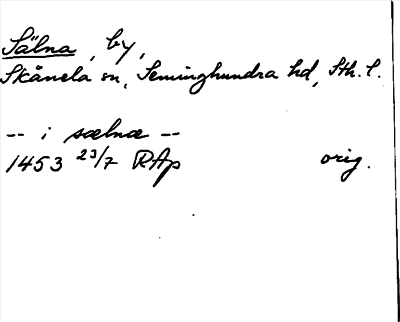 Sälna, by,
Skånela sn, Seminghundra hd, Sth. l.
-- i sælnæ --
1453 23/7 RAp orig.